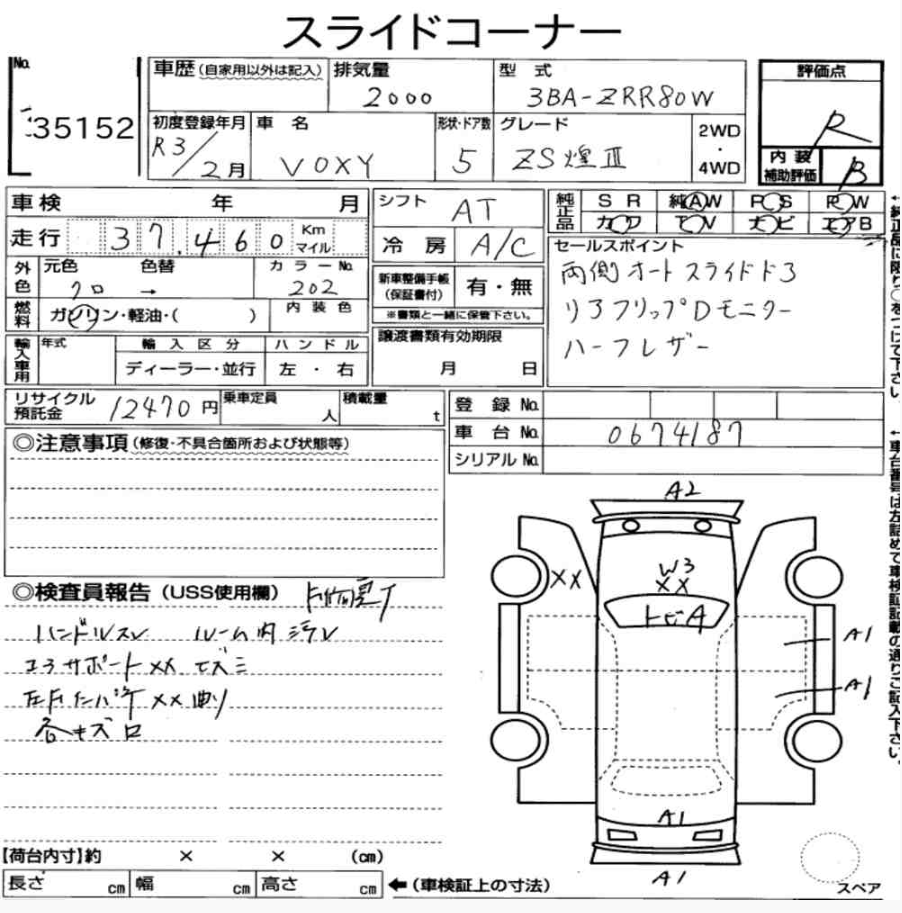 スライドコーナー
No.
35152
車歴 (自家用以外は記入)
排気量
2000
型式
3BA-ZRR80W
評価点
R
内装補助評価
B
初度登録年月
R3/2月
車名
VOXY
形状・ドア数
5
グレード
ZS煌Ⅲ
2WD
・
4WD
車検 年 月
走行 37,460 Km マイル
シフト AT
冷房 A/C
純正品
SR 純AW PS PW
カワ TV ナビ エアB
外色
元色 クロ
色替 →
カラーNo. 202
燃料 ガソリン・軽油・( )
内装色
新車整備手帳 (保証書付) 有・無
※書類と一緒に保管下さい。
セールスポイント
両側オートスライドドア
リアフリップDモニター
ハーフレザー
輸入車用
年式
輸入区分
ディーラー・並行
ハンドル
左・右
譲渡書類有効期限
月 日
リサイクル預託金 12470円
乗車定員 人
積載量 t
登録No.
車台No. 0674187
シリアルNo.
←純正品に限り○をつけて下さい。
←車台番号は左詰めで車検証記載の通りご記入下さい。
◎注意事項 (修復・不具合箇所および状態等)
◎検査員報告 (USS使用欄)
ハンドルスレ ルーム内汚レ
コアサポートXX
XX 曲り
各キズ
A2
W3
XX
XX
トビA
A1
A1
A1
A1
スペア
【荷台内寸】約 × × (cm)
長さ cm 幅 cm 高さ cm
←(車検証上の寸法)